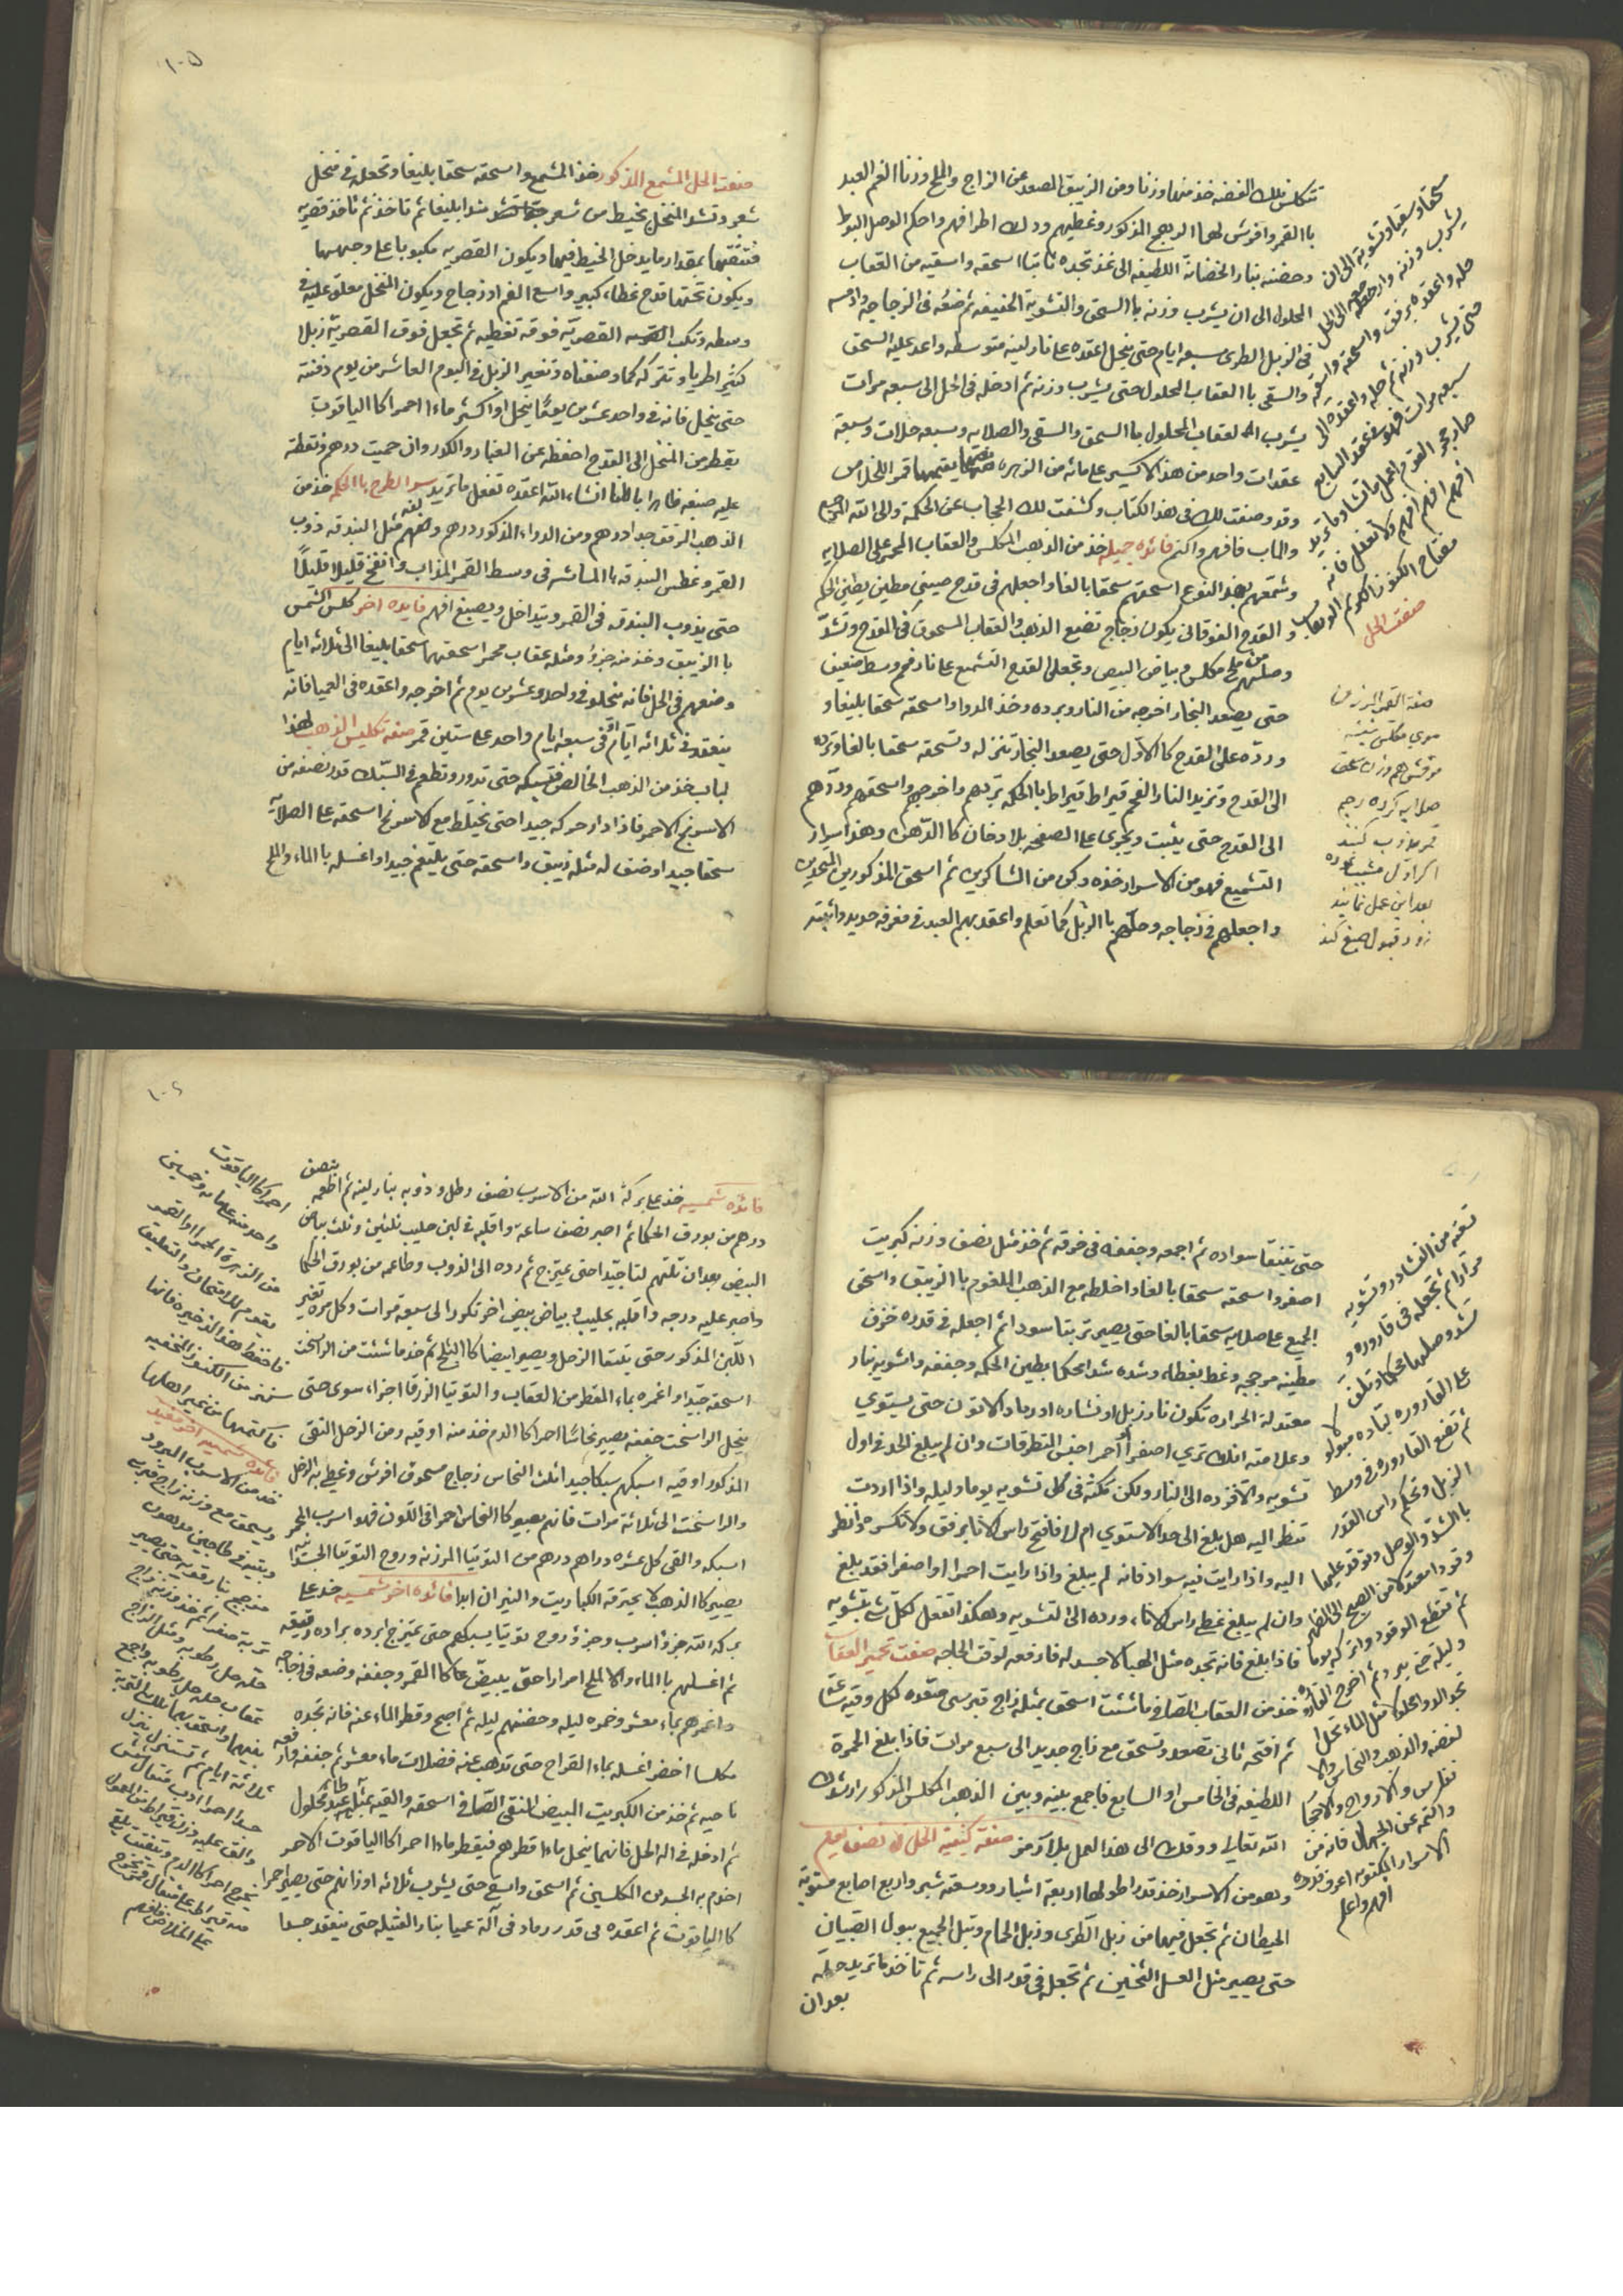 تتكلس تلك الفضه خذ منها وزنا ومن الزيبق المصعد عن الزاج والملح وزنا الغم العبد
باالقمر وافرش لهما الرهج المذكور وغطيهم ودك اطرافهم واحكم الوصل البوط
وحضنه بنار الخضانة اللطيفه الى غذ تجده ثابتا اسحقه واسقيه من العقاب
المحلول الى ان يشرب وزنه باالسحق والتشوية الخفيفه ثم ضعه فى الزجاجه وادمسه
فى الزبل الطرى سبعه ايام حتى ينحل اعقده على نار لينه متوسطه واعد عليه السحق
والسقى باالعقاب المحلول حتى يشرب وزنه ثم ادخله فى الحل الى سبعه مرات
يشرب العقاب المحلول باالسحق والسقى والصلايه وسبعه حلات وسبعة
عقدات واحد من هذا الاكسير على مائه من الزهره يقيمها قمر اللخلاص
وقد وصفت لك فى هذا الكتاب وكشفت لك الحجاب عن الحكمة والى الله المرجع
والماب فافهم واكتم فائده جميله خذ من الذهب المكلس والعقاب المحمر على الصلايه
وشمعهم بهذا النوع اسحقهم سحقا بالغا واجعلهم فى قدح صينى مطين بطين الحكم
والقدح الفوقانى يكون زجاج تضع الذهب والعقاب المسحوق فى القدح وتشد
وصلهم من ملح مكلس وبياض البيض وتجعل القدح التشميع على نار فحم وسط ضعيف
حتى يصعد البخار اخرجه من النار وبرده وخذ الدوا واسحقه سحقا بليغا و
ورده على القدح كاالاول حتى يصعد البخار تنزله وتسحقه سحقا بالغا وترده
الى القدح وتزيد النار الفحم قيراط قيراط باالحكمه تبردهم واخرجهم واسحقهم وردهم
الى القدح حتى يثبت ويجرى على الصفحه بلا دخان كاالدهن وهذا سرار
التشميع فهو من الاسرار خذه وكن من الشاكرين ثم اسحق المذكورين
واجعلهم فى زجاجه وحلهم باالزبل كما تعلم واعقد بهم العبد فى مغرفه حديد واثبته
سحقا وسقيا وتشوية الى ان
يشرب وزنه وارجعه الى الحل
حله واعقده برفق واسحقه واسقه
حتى يشرب وزنه ثم حله واعقده الى
سبعه مرات فهو عقد السابع
صار حجر القوم اعمل ما تشا وما تريد
افهم افهم افهم ولا تغفل فانه
مفتاح الكنوز الكوم الوهاب
صفت الحل
صفة القمر الرزين
موى مكلس بيضه
حل صلايه كرده رحم
قمر مذوب كنند
بعد اين عمل نمايند
زود قبول صبغ كند
١٠٥
صنعت الحل المشمع المذكور خذ المشمع واسحقه سحقا بليغا وتجعله فى منخل
شعر وتشد المنخل بخيط من شعر شدا بليغا ثم تاخذ ثم تاخذ قصريه
فتثقبها بمقدار ما يدخل الخيط فيها ويكون القصريه مكبوبا على وجهها
ويكون تحتها قدح غطاء كبير واسع الفم اوزجاج ويكون المنخل معلق عليه فى
وسطه وتكب القصريه فوقه تغطيه ثم تجعل فوق القصرية زبلا
كثير اطريا وتتركه كما وصفناه وتغير الزبل فى اليوم العاشر من يوم دفنته
حتى ينحل فانه فى واحد عشرين يوما ينحل او اكثر ماءا احمرا كاالياقوت
يقطر من المنخل الى القدح احفظه عن الغبار والكور وان حميت درهم ونقطة
عليه صبغه ظاهرا باطنا انشاء الله اعقده تفعل ما تريد سر الطرح باالحكم خذ من
الذهب المرقق جدا درهم ومن الدواء المذكور درهم ولفهم مثل البندقه ذوب
القمر وغطس البندقه باالماشه فى وسط القمر المذاب وانفخ قليلا قليلا
حتى يذوب البندقه فى القمر ويتداخل ويصبغ افهم فايده اخر كلس الشمس
باالزيبق وخذ منه جزو ومثله عقاب محمر اسحقهما سحقا بليغا الى ثلاثه ايام
وضعهم فى الحل فانه منحلو فى واحد وعشرين يوم ثم اخرجه واعقده فى العميا فانه
ينعقد فى ثلاثه ايام او فى سبعه ايام واحد على ستين قمر صفة تكليس الذهب لهذا
لباب خذ من الذهب الخالص فتسبكه حتى تدور وتطعم فى السبك قدر نصفه من
الاسرنج الاحمر فاذا دار حركه جيدا حتى يختلط مع كاسرنج اسحقه على الصلايه
سحقا جيدا وضف له مثله زيبق واسحقه حتى يلتغم جيدا واغسله باالماء والملح
حتى يتنقا سواده ثم اجمعه وجففه فى خرقه ثم خذ مثل نصف وزنه كبريت
اصفر واسحقه سحقا بالغا واخلطه مع الذهب الملغوم باالزيبق واسحق
الجميع على صلايه سحقا بالغا حتى يصير تربتا سودا ثم اجعله فى قدره خزف
مطينه مرججه وغط بغطاه وشده شدا محكما بطين الحكمه وجففه واشويه بنار
معتدلة الحراره تكون نار زبل او نشاره او رماد الاتون حتى يستوي
وعلامته انك تري اصفرا او احمر اجنس المتطرقات وان لم يبلغ الحد فى اول
تشويه والا فزده الى النار ولكن مكثه فى كل تشويه يوما وليله واذا اردت
تنظر اليه هل بلغ الى حد الاستوي ام لا فافتح راس الاناء برفق ولا تكسره وانظر
اليه واذا رايت فيه سواد فانه لم يبلغ واذا رايت احمرا او اصفرا فقد بلغ
وان لم يبلغ غطى راس الاناء ورده الى التشويه وهكذا تفعل لكل شى بتشويه
فاذا بلغ فانه تجده مثل الهبا لا جسد له فارفعه لوقت الحاجه صفت تحمير العقاب
خذ من العقاب الصافى ما شئت اسحق بمثله زاج قبرسى صعده لكل وقيه ساعة
ثم افتحه ثانى تصعد وتسحق مع زاج جديد الى سبع مرات فاذا بلغ الحمرة
اللطيفه فى الخامس او السابع فاجمع بينه وبين الذهب المكلس المذكور ارشدك
الله تعالى ووفقك الى هذا العمل بلا رمز صفة كيفية الحل فى نصف يوم
وهو من الاسرار خذ قدر اطولها اربعة اشبار ووسعته شبر واربع اصابع مستوية
الحيطان ثم تجعل فيها من زبل الطرى وزبل الحمام وتبل الجميع ببول الصبيان
حتى يصير مثل العسل الثخين ثم تجعل فى قدر الى راسه ثم تاخذ ما تريد حله
بعد ان
تسقه من النشادر وتشويه
مرارا ثم تجعله فى قاروره و
تشد وصلهما محكما وتلف
على القاروره لباده مبلوله
ثم تضع القاروره فى وسط
الزبل وتحكم راس القدر
باالشد والوصل وتوقد عليها
وقود معتدلا من الصبح الى الظهر
ثم تقطع الوقود واتركه يوما
وليلة حتى يبرد ثم اخرج القاروره
تجد الدوا محلولا مثل الماء تحل
الفضه والذهب والنحاس والا
نفاس والارواح والاحجار
واكتمه عن الجهال فانه من
الاسرار المكتومه اعرف قدره
افهم واعلم
١٠٦
فائده شمسيه خذ على بركة الله من الاسرب نصف رطل وذوبه بنار لينه ثم اطعمه بنصف
درهم من بورق الحكما ثم اصبر نصف ساعة واقلبه فى لبن حليب ثلثين وثلث بياض
البيض بعد ان تلتهم لتا جيدا حتى يمتزج ثم رده الى الذوب وطاعمه من بورق الحكما
واصبر عليه درجه واقلبه بحليب وبياض بيض اخر تكور الى سبعة مرات وكل مره تغير
اللبن المذكور حتى يتنقا الزحل ويصير ابيضا كاالثلج ثم خذ ما شئت من الراسخت
اسحقه جيدا واغمره بماء المقطر من العقاب والتوتيا الزرقا اجزاء سوى حتى
ينحل الراسخت جففه يصير نحاسا احمرا كاالدم خذ منه اوقيه ومن الزحل النقى
المذكور اوقيه اسبكهم سبكا جيدا ثلث النحاس زجاج مسحوق افرش وغطى به الزحل
والراسخت الى ثلاثة مرات فانهم يصيرو كاالنحاس احمر فى اللون فهو اسرب المحمر
اسبكه والقى كل عشره دراهم درهم من التوتيا المرزنه وروح التوتيا الجسد انيه
يصير كاالذهب لا يحترقه الكباريت والنيران ابدا فائده اخر شمسيه خذ على
بركة الله جزو اسرب وجزو روح توتيا يسبكهم حتى تمتزج ابرده براده رقيقه
ثم اغسلهم باالماء والاالملح امرارا حتى يبيض كاالقمر وجففه وضعه فى زجاجه
واغمرهم بماء معشر وخمره ليله وحضنهم ليله ثم اصبح وقطر الماء عنه فانه تجده
مكلسا اخضر اغسله بماء القراح حتى تذهب عنه فضلات ماء معشر ثم جففه وارفعه
ناحيه ثم خذ من الكبريت البيض المنقى الصافى اسحقه والقيه بمثله عبد محلول
ثم ادخله فى اله الحل فانهما ينحل ماءا قطرهم فيقطر ماءا احمرا كاالياقوت الاحمر
اخدم به الجسدين المكلسين ثم اسحق واسقى حتى يشرب ثلاثه اوزانهم حتى يصير احمرا
كاالياقوت ثم اعقده فى قدر رماد فى آلة عميا بنار الفتيله حتى ينعقد جسدا
احمرا كاالياقوت
واحد منه على مايه وخمسين
من الزهرة الحمرا والقمر
يقوم للامتحان والتعليق
فاحفظ هذا الذخيره فانها
كنز من الكنوز المخفيه
فاكتمها من غير اهلها
فائده شمسيه اخر مفيد
خذ من الاسرب المبرود
ويسحق مع وزنه زاج قبرسى
وبيته فى طاجين مدهون
مزجج بنار قويه حتى يصير
تربة صفرا ثم خذ وزنه زاج
حله حل رطوبه ومثل الزاج
عقاب حله حل رطوبه واجمع
بينهما واسحق بهما تلك التربة
ثلاثة ايام ثم تستنزل ينزل
والق عليه وزن قيراط من المعمول
يخرج احمرا كاالدم ويتفتت يلقى
منه قيراط على مثقال قمر يخرج
على الخلاص فافهم